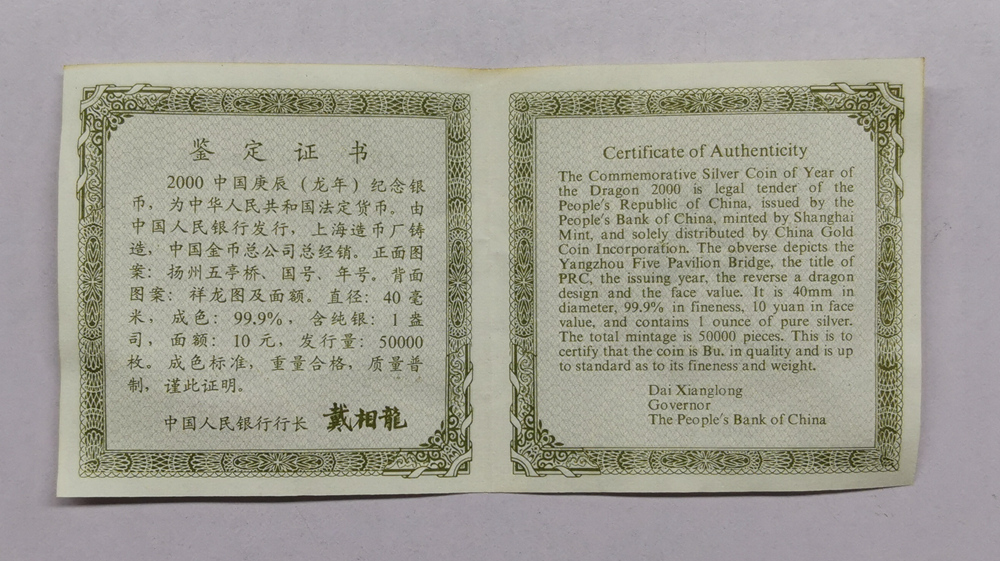 鉴定证书
2000 中国庚辰 (龙年) 纪念银
币，为中华人民共和国法定货币。由
中国人民银行发行，上海造币厂铸
造，中国金币总公司总经销。正面图
案：扬州五亭桥、国号、年号。背面
图案：祥龙图及面额。直径：40 毫
米，成色：99.9%，含纯银：1 盎
司，面额：10 元，发行量：50000
枚。成色标准，重量合格，质量普
制，谨此证明。
中国人民银行行长 戴相龍
Certificate of Authenticity
The Commemorative Silver Coin of Year of
the Dragon 2000 is legal tender of the
People's Republic of China, issued by the
People's Bank of China, minted by Shanghai
Mint, and solely distributed by China Gold
Coin Incorporation. The obverse depicts the
Yangzhou Five Pavilion Bridge, the title of
PRC, the issuing year, the reverse a dragon
design and the face value. It is 40mm in
diameter, 99.9% in fineness, 10 yuan in face
value, and contains 1 ounce of pure silver.
The total mintage is 50000 pieces. This is to
certify that the coin is Bu. in quality and is up
to standard as to its fineness and weight.
Dai Xianglong
Governor
The People's Bank of China